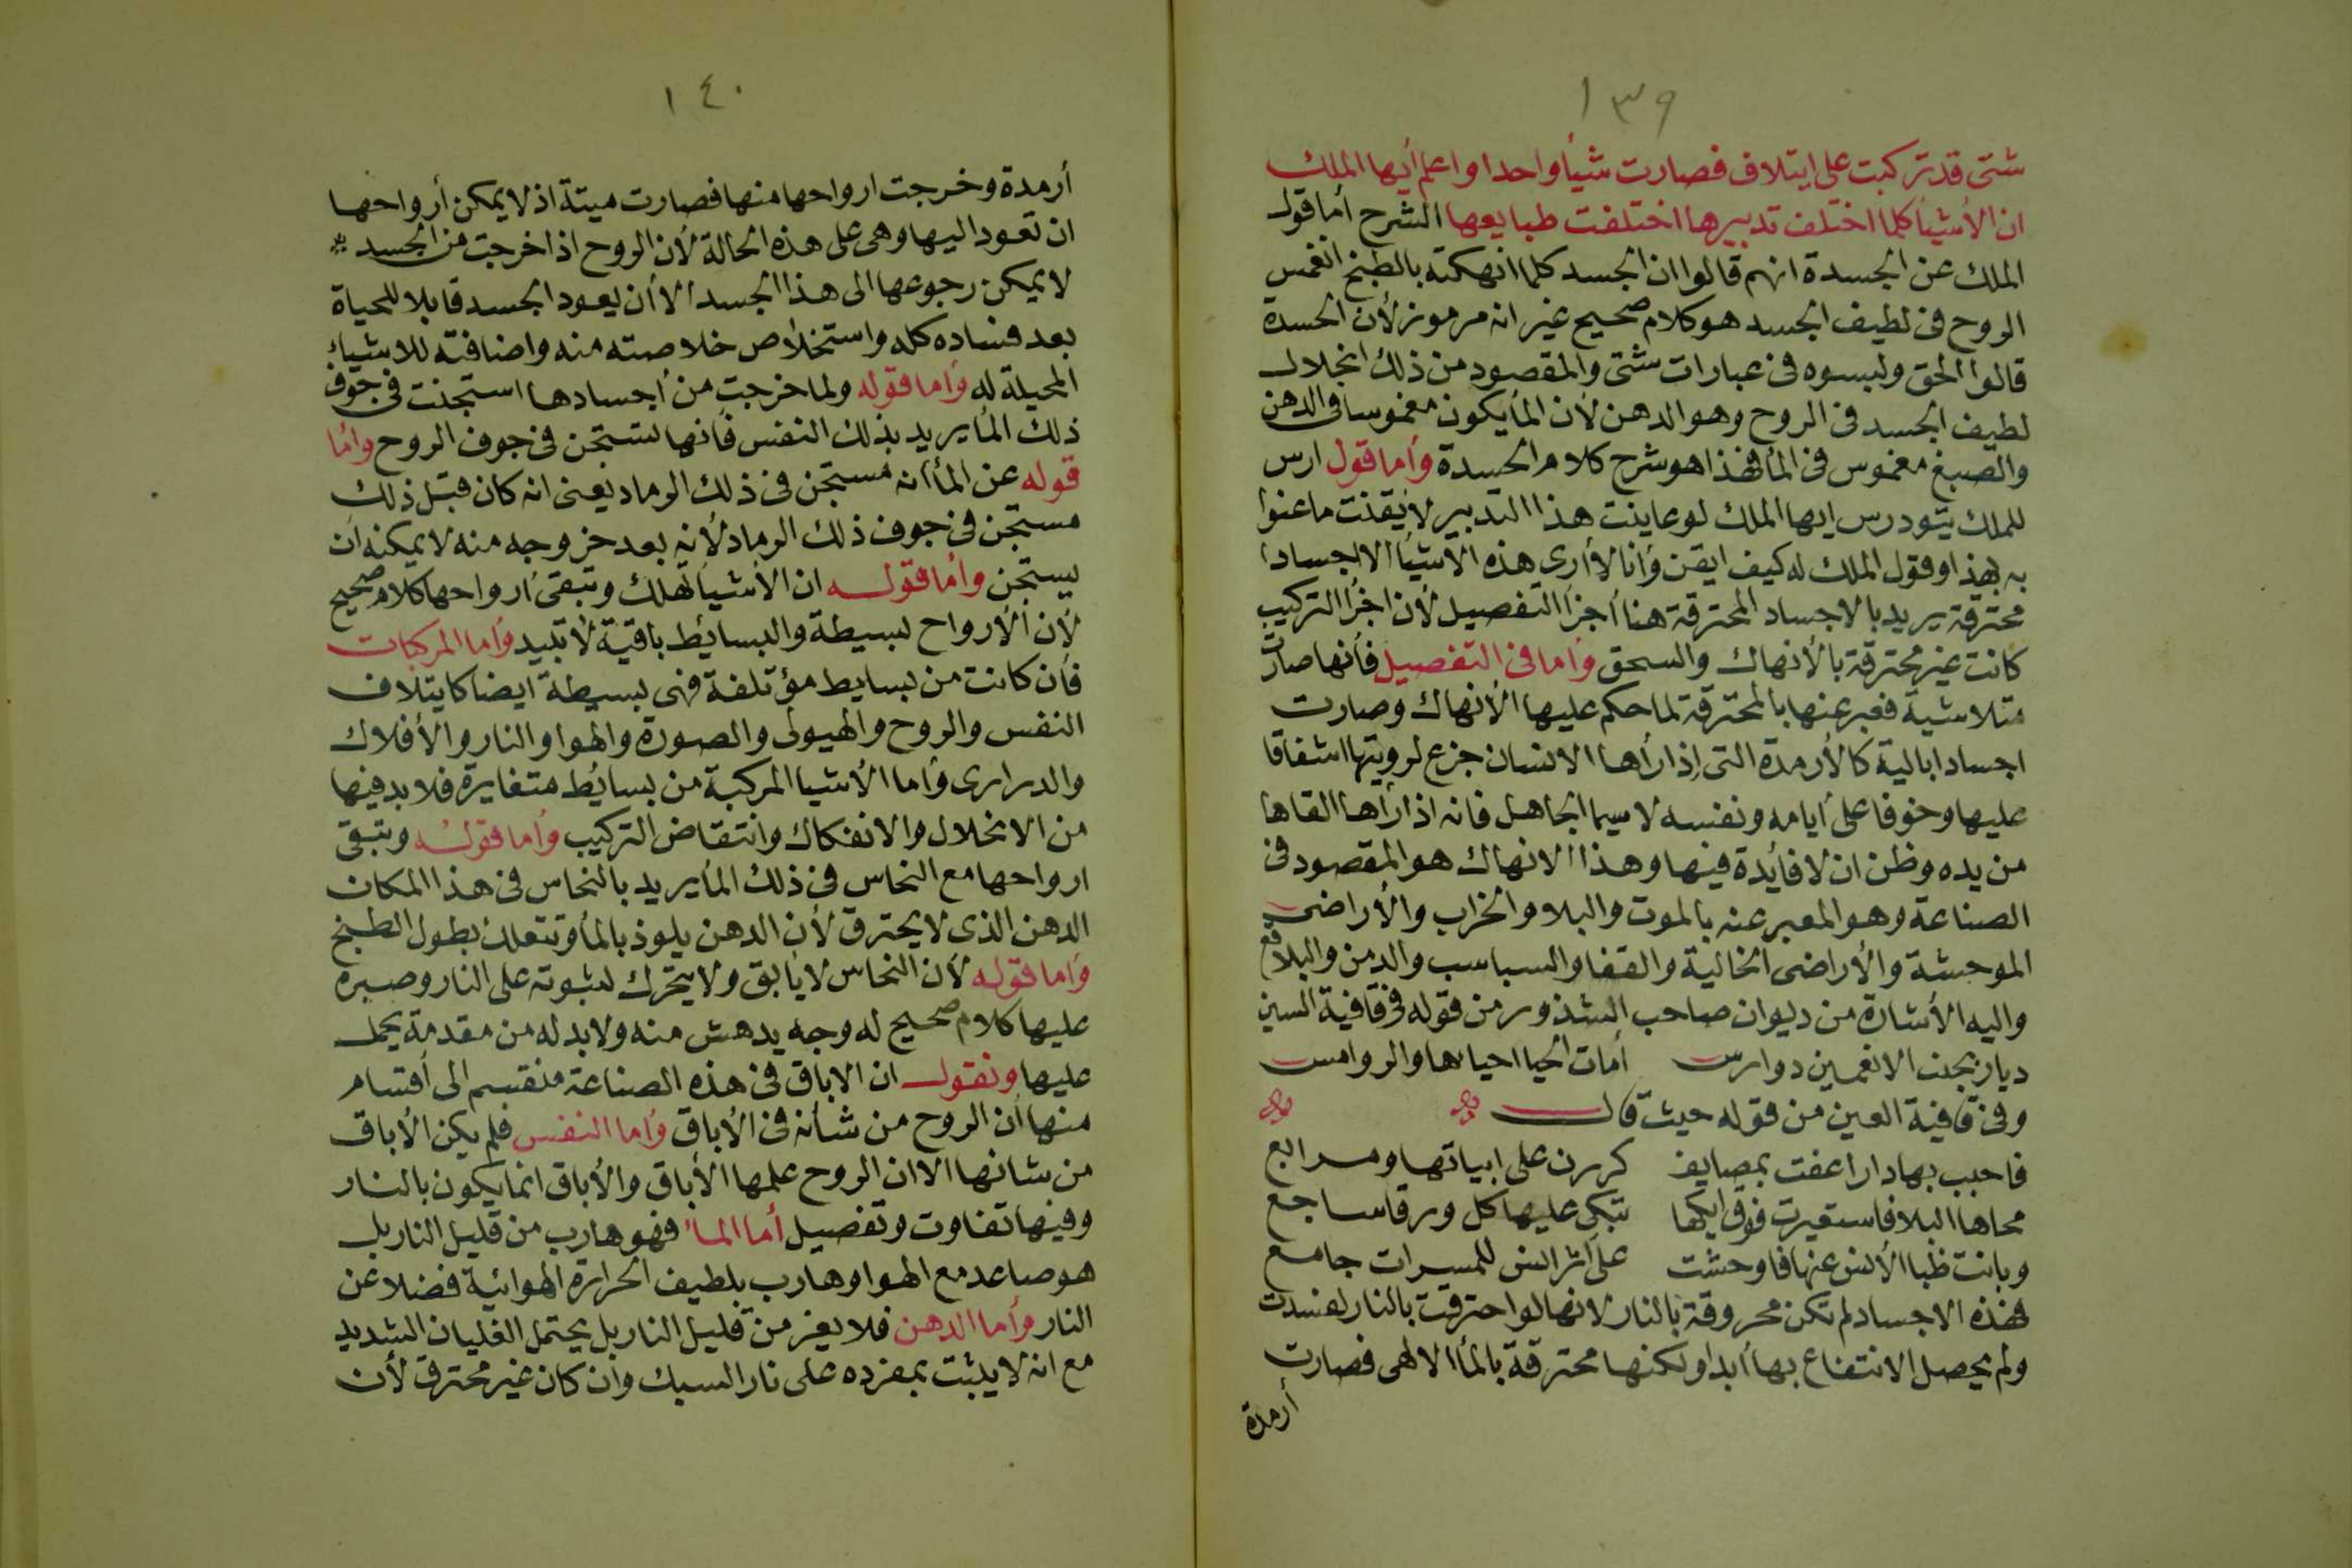 ١٣٩
شتى قد تركبت على ايتلاف فصارت شيأ واحدا واعلم أيها الملك
ان الأشيأ كلما اختلف تدبيرها اختلفت طبايعها الشرح أما قول
الملك عن الحسدة انهم قالوا ان الجسد كلما انهكته بالطبخ انغمس
الروح فى لطيف الجسد هو كلام صحيح غير انه مرموز لأن الحسدة
قالوا الحق ولبسوه فى عبارات شتى والمقصود من ذلك انحلال
لطيف الجسد فى الروح وهو الدهن لأن المأ يكون مغموسا فى الدهن
والصبغ مغموس فى المأ فهذا هو شرح كلام الحسدة وأما قول ارس
للملك تيودرس ايها الملك لو عاينت هذا التدبير لأيقنت ما عنوا
به بهذا وقول الملك له كيف ايقن وأنا لا أرى هذه الأشيأ الا اجسادا
محترقة يريد بالاجساد المحترقة هنا أجزأ التفصيل لأن اجزأ التركيب
كانت غير محترقة بالأنهاك والسحق وأما فى التفصيل فأنها صارت
متلاشية فعبر عنها بالمحترقة لما حكم عليها الأنهاك وصارت
اجسادا بالية كالأرمدة التى إذا رأها الانسان جزع لرويتها اشفاقا
عليها وخوفا على أيامه ونفسه لا سيما الجاهل فانه اذا رأها القاها
من يده وظن ان لا فايدة فيها وهذا الانهاك هو المقصود فى
الصناعة وهو المعبر عنه بالموت والبلا والخراب والأراضى
الموحشة والأراضى الخالية والقفا والسباسب والدمن والبلاقع
واليه الأشارة من ديوان صاحب الشذور من قوله فى قافية السين
ديار بجنب الانعمين دوارس أمات الحيا احياها والروامس
وفى قافية العين من قوله حيث قال
فاحبب بها دارا عفت بمصايف كررن على ابياتها ومرابع
محاها البلا فاستعيرت فوق ايكها تبكى عليها كل ورقا ساجع
وبانت ظبا الأنس عنها فاوحشت على اثر انس للمسرات جامع
فهذه الاجساد لم تكن محروقة بالنار لانها لو احترقت بالنار لفسدت
ولم يحصل الانتفاع بها أبدا ولكنها محترقة بالمأ الالهى فصارت
أرمدة
١٤٠
أرمدة وخرجت ارواحها منها فصارت ميتة اذ لا يمكن أرواحها
ان تعود اليها وهى على هذه الحالة لأن الروح اذا خرجت من الجسد
لا يمكن رجوعها الى هذا الجسد الا أن يعود الجسد قابلا للحياة
بعد فساده كله واستخلاص خلاصته منه واضافته للاشيا
المحيلة له وأما قوله ولما خرجت من أجسادها استجنت فى جوف
ذلك المأ يريد بذلك النفس فأنها تستجن فى جوف الروح وأما
قوله عن المأ انه مستجن فى ذلك الرماد يعنى انه كان قبل ذلك
مستجن فى جوف ذلك الرماد لأنه بعد خروجه منه لا يمكنه ان
يستجن وأما قوله ان الأشيأ تهلك وتبقى أرواحها كلام صحيح
لأن الأرواح بسيطة والبسايط باقية لا تبيد وأما المركبات
فأن كانت من بسايط مؤتلفة فهى بسيطة ايضا كايتلاف
النفس والروح والهيولى والصورة والهوا والنار والأفلاك
والدرارى وأما الأشيا المركبة من بسايط متغايرة فلا بد فيها
من الانحلال والانفكاك وانتقاض التركيب وأما قوله وتبقى
ارواحها مع النحاس فى ذلك المأ يريد بالنحاس فى هذا المكان
الدهن الذى لا يحترق لأن الدهن يلوذ بالمأ وتتعلك بطول الطبخ
وأما قوله لأن النحاس لا يأبق ولا يتحرك لثبوته على النار وصبره
عليها كلام صحيح له وجه يدهش منه ولا بد له من مقدمة يحمل
عليها ونقول ان الاباق فى هذه الصناعة منقسم الى أقسام
منها أن الروح من شأنه فى الأباق وأما النفس فلم يكن الأباق
من شانها الا ان الروح علمها الأباق والأباق انما يكون بالنار
وفيها تفاوت وتفصيل أما الما فهو هارب من قليل النار بل
هو صاعد مع الهوا وهارب بلطيف الحرارة الهوائية فضلا عن
النار وأما الدهن فلا يفر من قليل النار بل يحتمل الغليان الشديد
مع انه لا يثبت بمفرده على نار السبك وان كان غير محترق لأن